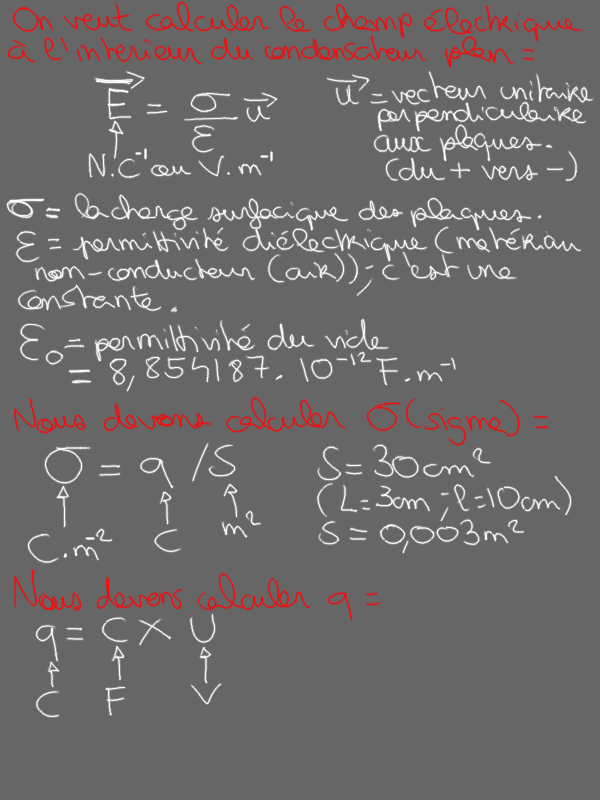 On veut calculer le champ électrique
à l'intérieur du condensateur plan =
E = σ/ε u
N.C⁻¹ ou V.m⁻¹
u = vecteur unitaire
perpendiculaire
aux plaques.
(du + vers -)
σ = la charge surfacique des plaques.
ε = permittivité diélectrique (matériau
non-conducteur (air)); c'est une
constante.
ε₀ = permittivité du vide
= 8,854187. 10⁻¹² F.m⁻¹
Nous devons calculer σ (sigma) =
σ = q / S
C.m⁻² C m²
S = 30cm²
(L=3cm ; l=10cm)
S = 0,003m²
Nous devons calculer q =
q = C × U
C F V